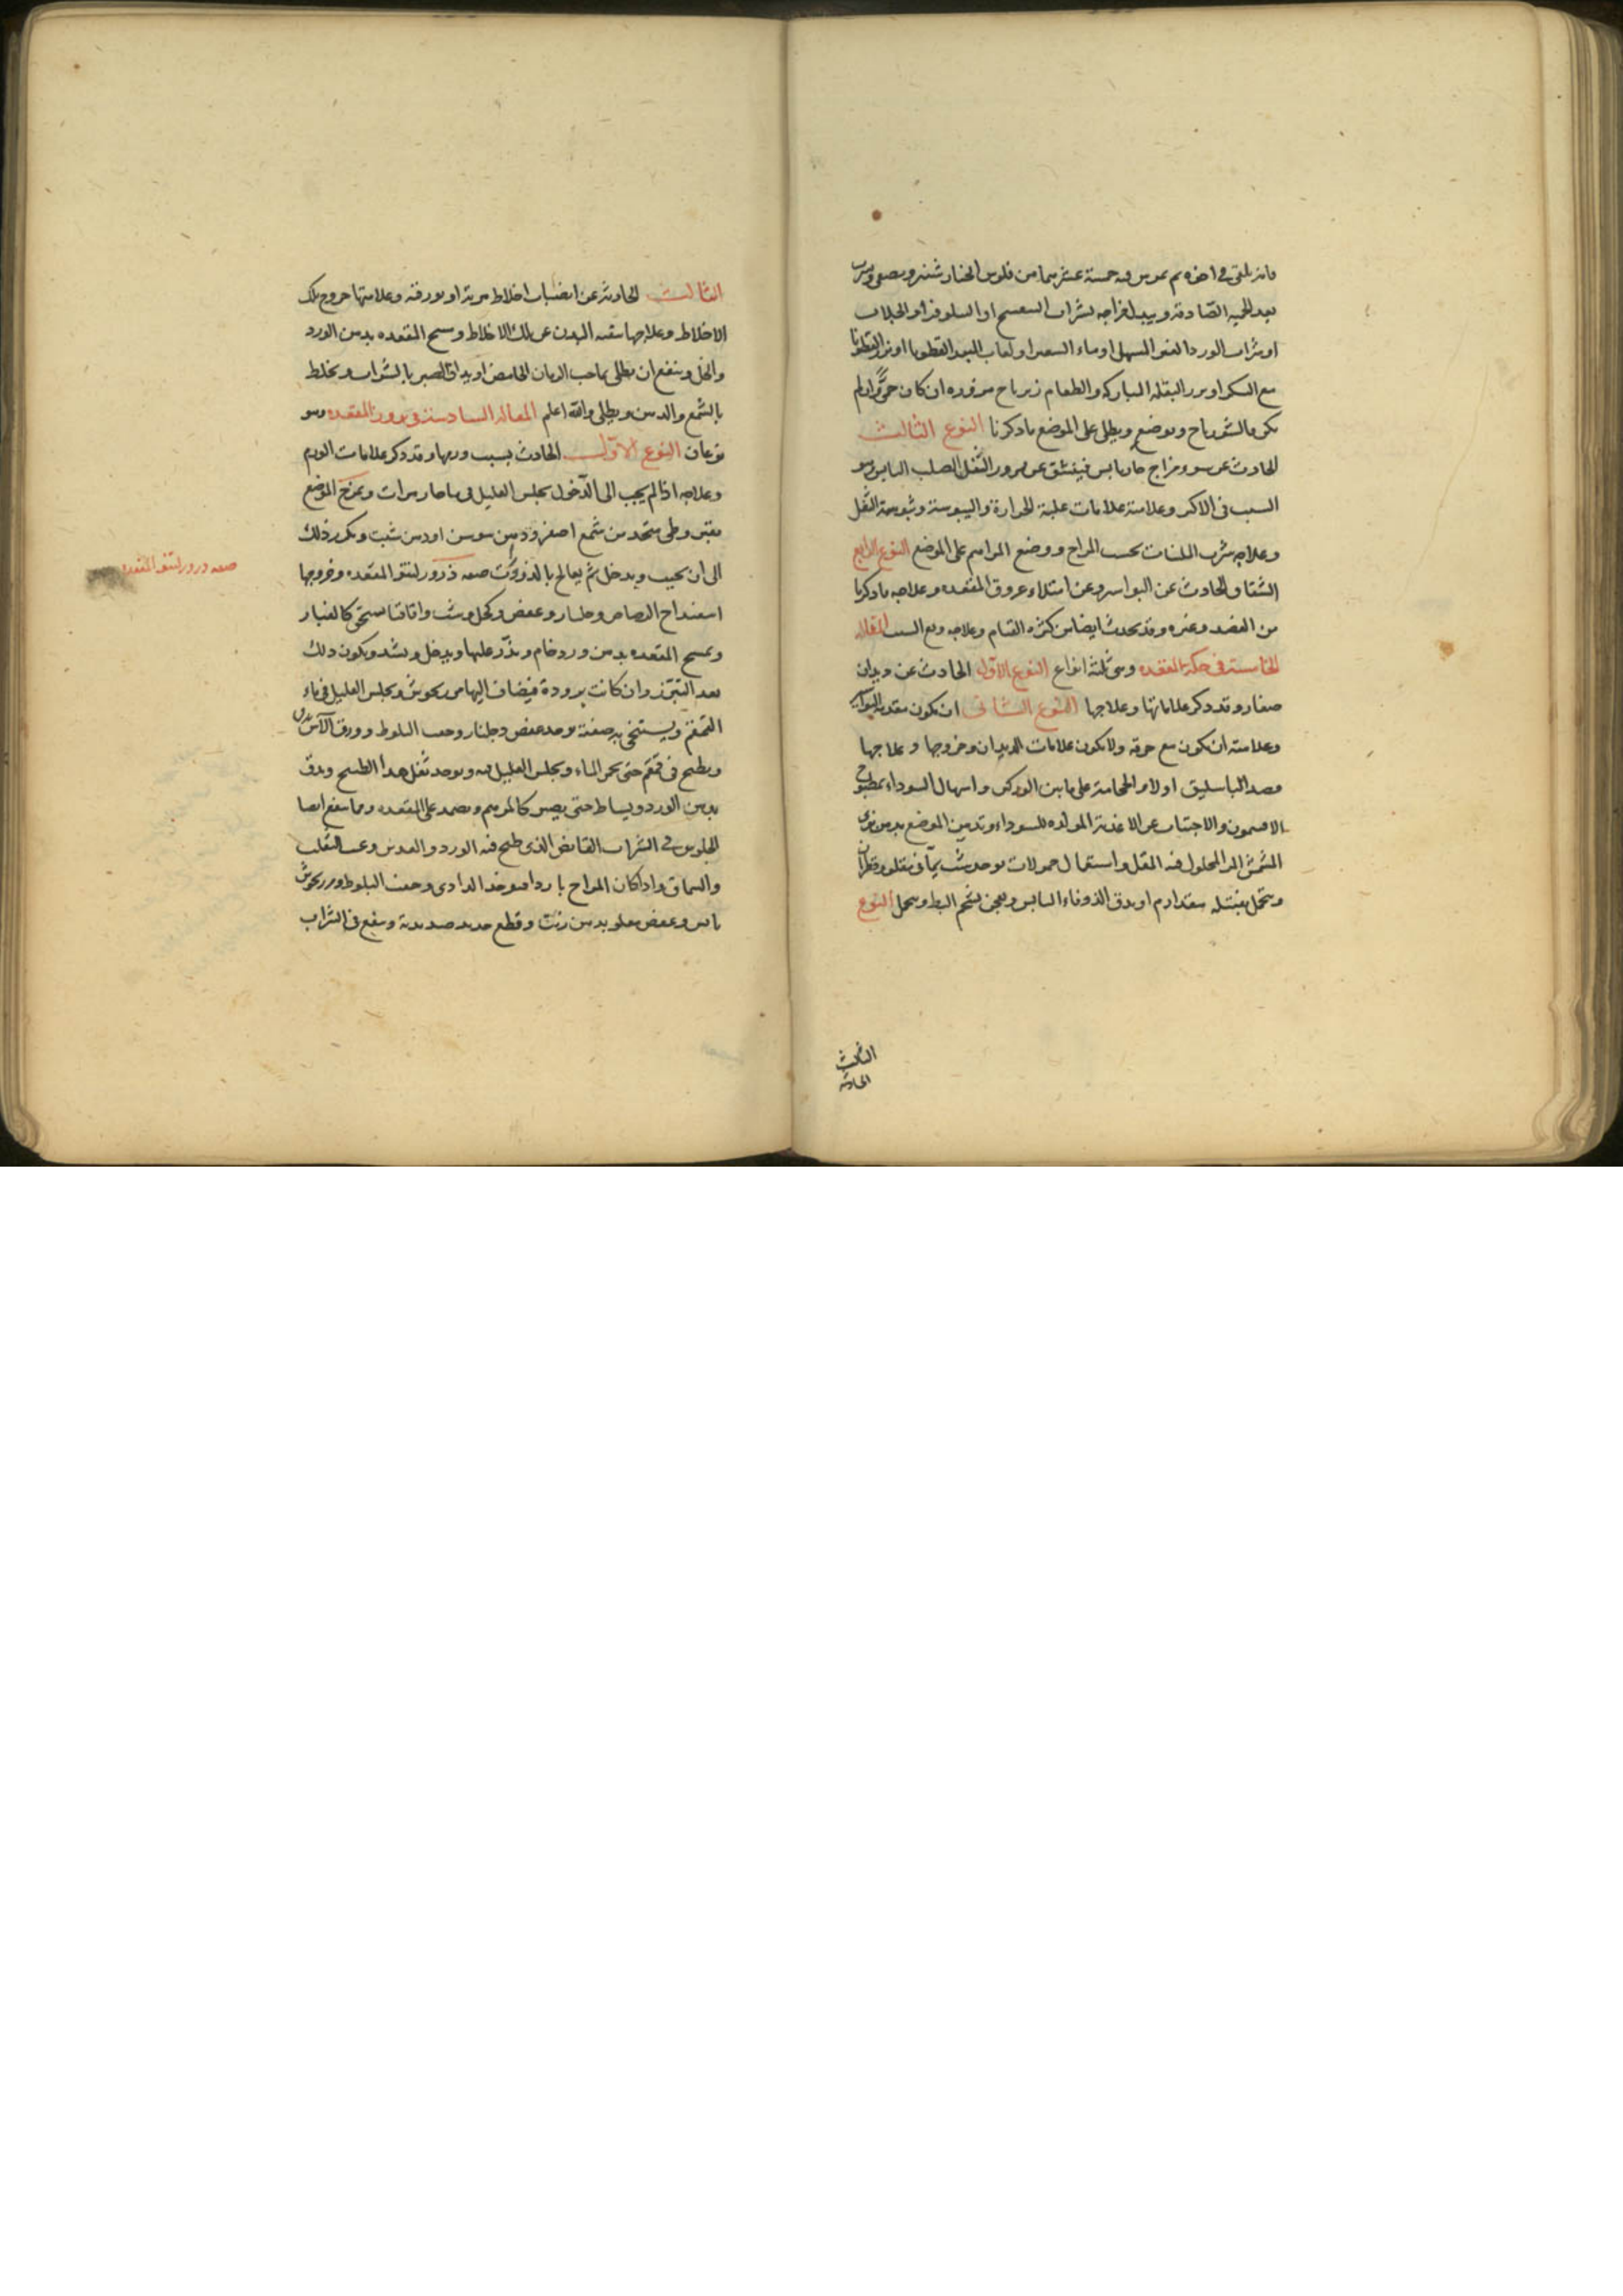 فانه يلقى في اخره ثم يمرس فيه خمسة عشر درهما من فلوس الخيار شنبر ويصفى ويشرب
بعد الحمية الصادقة ويبدل مزاجه بشراب البنفسج او النيلوفر او الجلاب
او شراب الورد المسهل او ماء الشعير او لعاب البزر القطونا او بزر القطونا
مع السكر او بزر البقلة المباركة والطعام زيرباج مزوره ان كان حمى وان لم
يكن فالشورباج ويوضع ويطلى على الموضع ما ذكرنا النوع الثالث
الحادث عن سوء مزاج حار يابس فينشق عن مرور الثفل الصلب اليابس وهو
السبب في الاكثر وعلامته علامات غلبة الحرارة واليبوسة ويبوسة الثفل
وعلاجه شرب الملينات بحسب المزاج ووضع المراهم على الموضع النوع الرابع
الشقاق الحادث عن البواسير وعن امتلاء عروق المقعده وعلاجه ما ذكرنا
من الفصد وغيره وقد يحدث ايضا من كثرة القيام وعلاجه رفع السبب المقاله
الخامسة في حكة المقعده وهي ثلثة انواع النوع الاول الحادث عن ديدان
صغار وقد ذكر علاماتها وعلاجها النوع الثاني ان يكون مقدمة البواسير
وعلامته ان يكون مع حرقه ولا يكون علامات الديدان وخروجها وعلاجها
فصد الباسليق اولا والحجامة على ما بين الوركين واسهال السوداء بمطبوخ
الافتيمون والاجتناب عن الاغذية المولده للسوداء وتدهين الموضع بدهن نوى
المشمش المر المحلول فيه المقل واستعمال حمولات يوخذ شب يماني مقلو وقطران
ويتحمل بفتيله مقدار درهم او يدق الزوفاء اليابس ويعجن بشحم البط ويتحمل النوع
الثالث
الحادثه
الثالث الحادثة عن انصباب اخلاط مرية او بورقية وعلامتها خروج تلك
الاخلاط وعلاجها تنقيه البدن عن تلك الاخلاط ومسح المقعده بدهن الورد
والخل وينفع ان يطلى بماء حب الرمان الحامض او يداف الصبر بالشراب ويخلط
بالشمع والدهن ويطلى والله اعلم المقاله السادسة في بروز المقعده وهو
نوعان النوع الاول الحادث بسبب ورمها وقد ذكر علامات الورم
وعلاجه اذا لم يجب الى الدخول يجلس العليل في ماء حار مرات ويمرخ الموضع
بقيروطى متخد من شمع اصفر ودهن سوسن او دهن شبت ويكرر ذلك
الى ان يجيب ويدخل ثم يعالج بالذرورات صفه ذرور لنتو المقعده وخروجها
اسفيداج الرصاص وجلنار وعفص وكحل وشب واقاقيا يسحق كالغبار
ويمسح المقعده بدهن ورد خام ويذر عليها ويدخل ويشد ويكون ذلك
بعد التبرز وان كانت برودة فيضاف اليها مرزنجوش ويجلس العليل في ماء
القمقم ويستنجى به صفته يوخذ عفص وجلنار وجفت البلوط وورق الآس
ويطبخ في قمقم حتى يحمر الماء ويجلس العليل فيه ويوخذ ثفل هذا الطبيخ ويدق
بدهن الورد ويساط حتى يصير كالمرهم ويضمد على المقعده ومما ينفع ايضا
الجلوس في الشراب القابض الذي طبخ فيه الورد والعدس وعنب الثعلب
والسماق واذا كان المزاج باردا فيوخذ الدادى وجفت البلوط ومرزنجوش
يابس وعفص مقلو بدهن زيت وقطع حديد صديه وينقع في الشراب
صفه ذرور لنتو المقعده